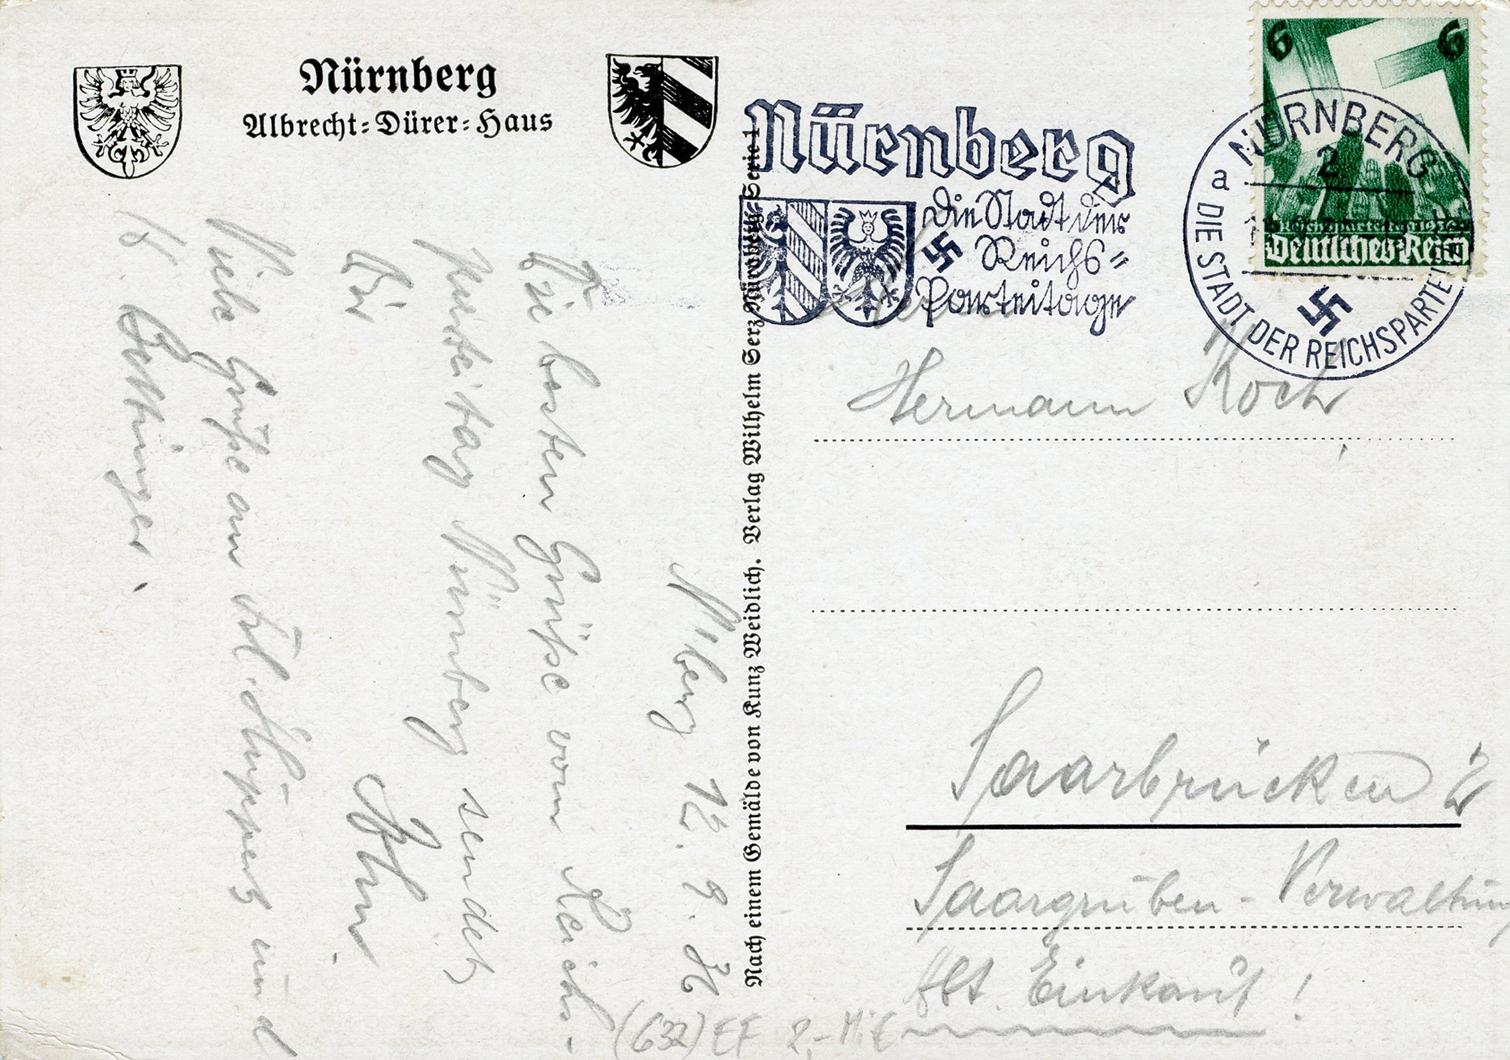 Nürnberg
Albrecht-Dürer-Haus
N'berg 12. 9. 36
Die besten Grüße vom Reichs-
parteitag Nürnberg sendet
Dir
Viele Grüße an Frl. Huppert und
H. Bettinger.
Nach einem Gemälde von Kunz Weidlich. Verlag Wilhelm Serz, Nürnberg. Serie 1
Nürnberg
die Stadt der
Reichs-
parteitage
6 6
Reichsparteitag 1936
Deutsches Reich
NÜRNBERG
2
a
DIE STADT DER REICHSPARTEITAGE
Herrn
Hermann Koch
Saarbrücken 2
Saargruben-Verwaltung
Abt. Einkauf!
(632) EF 2,- Mi€